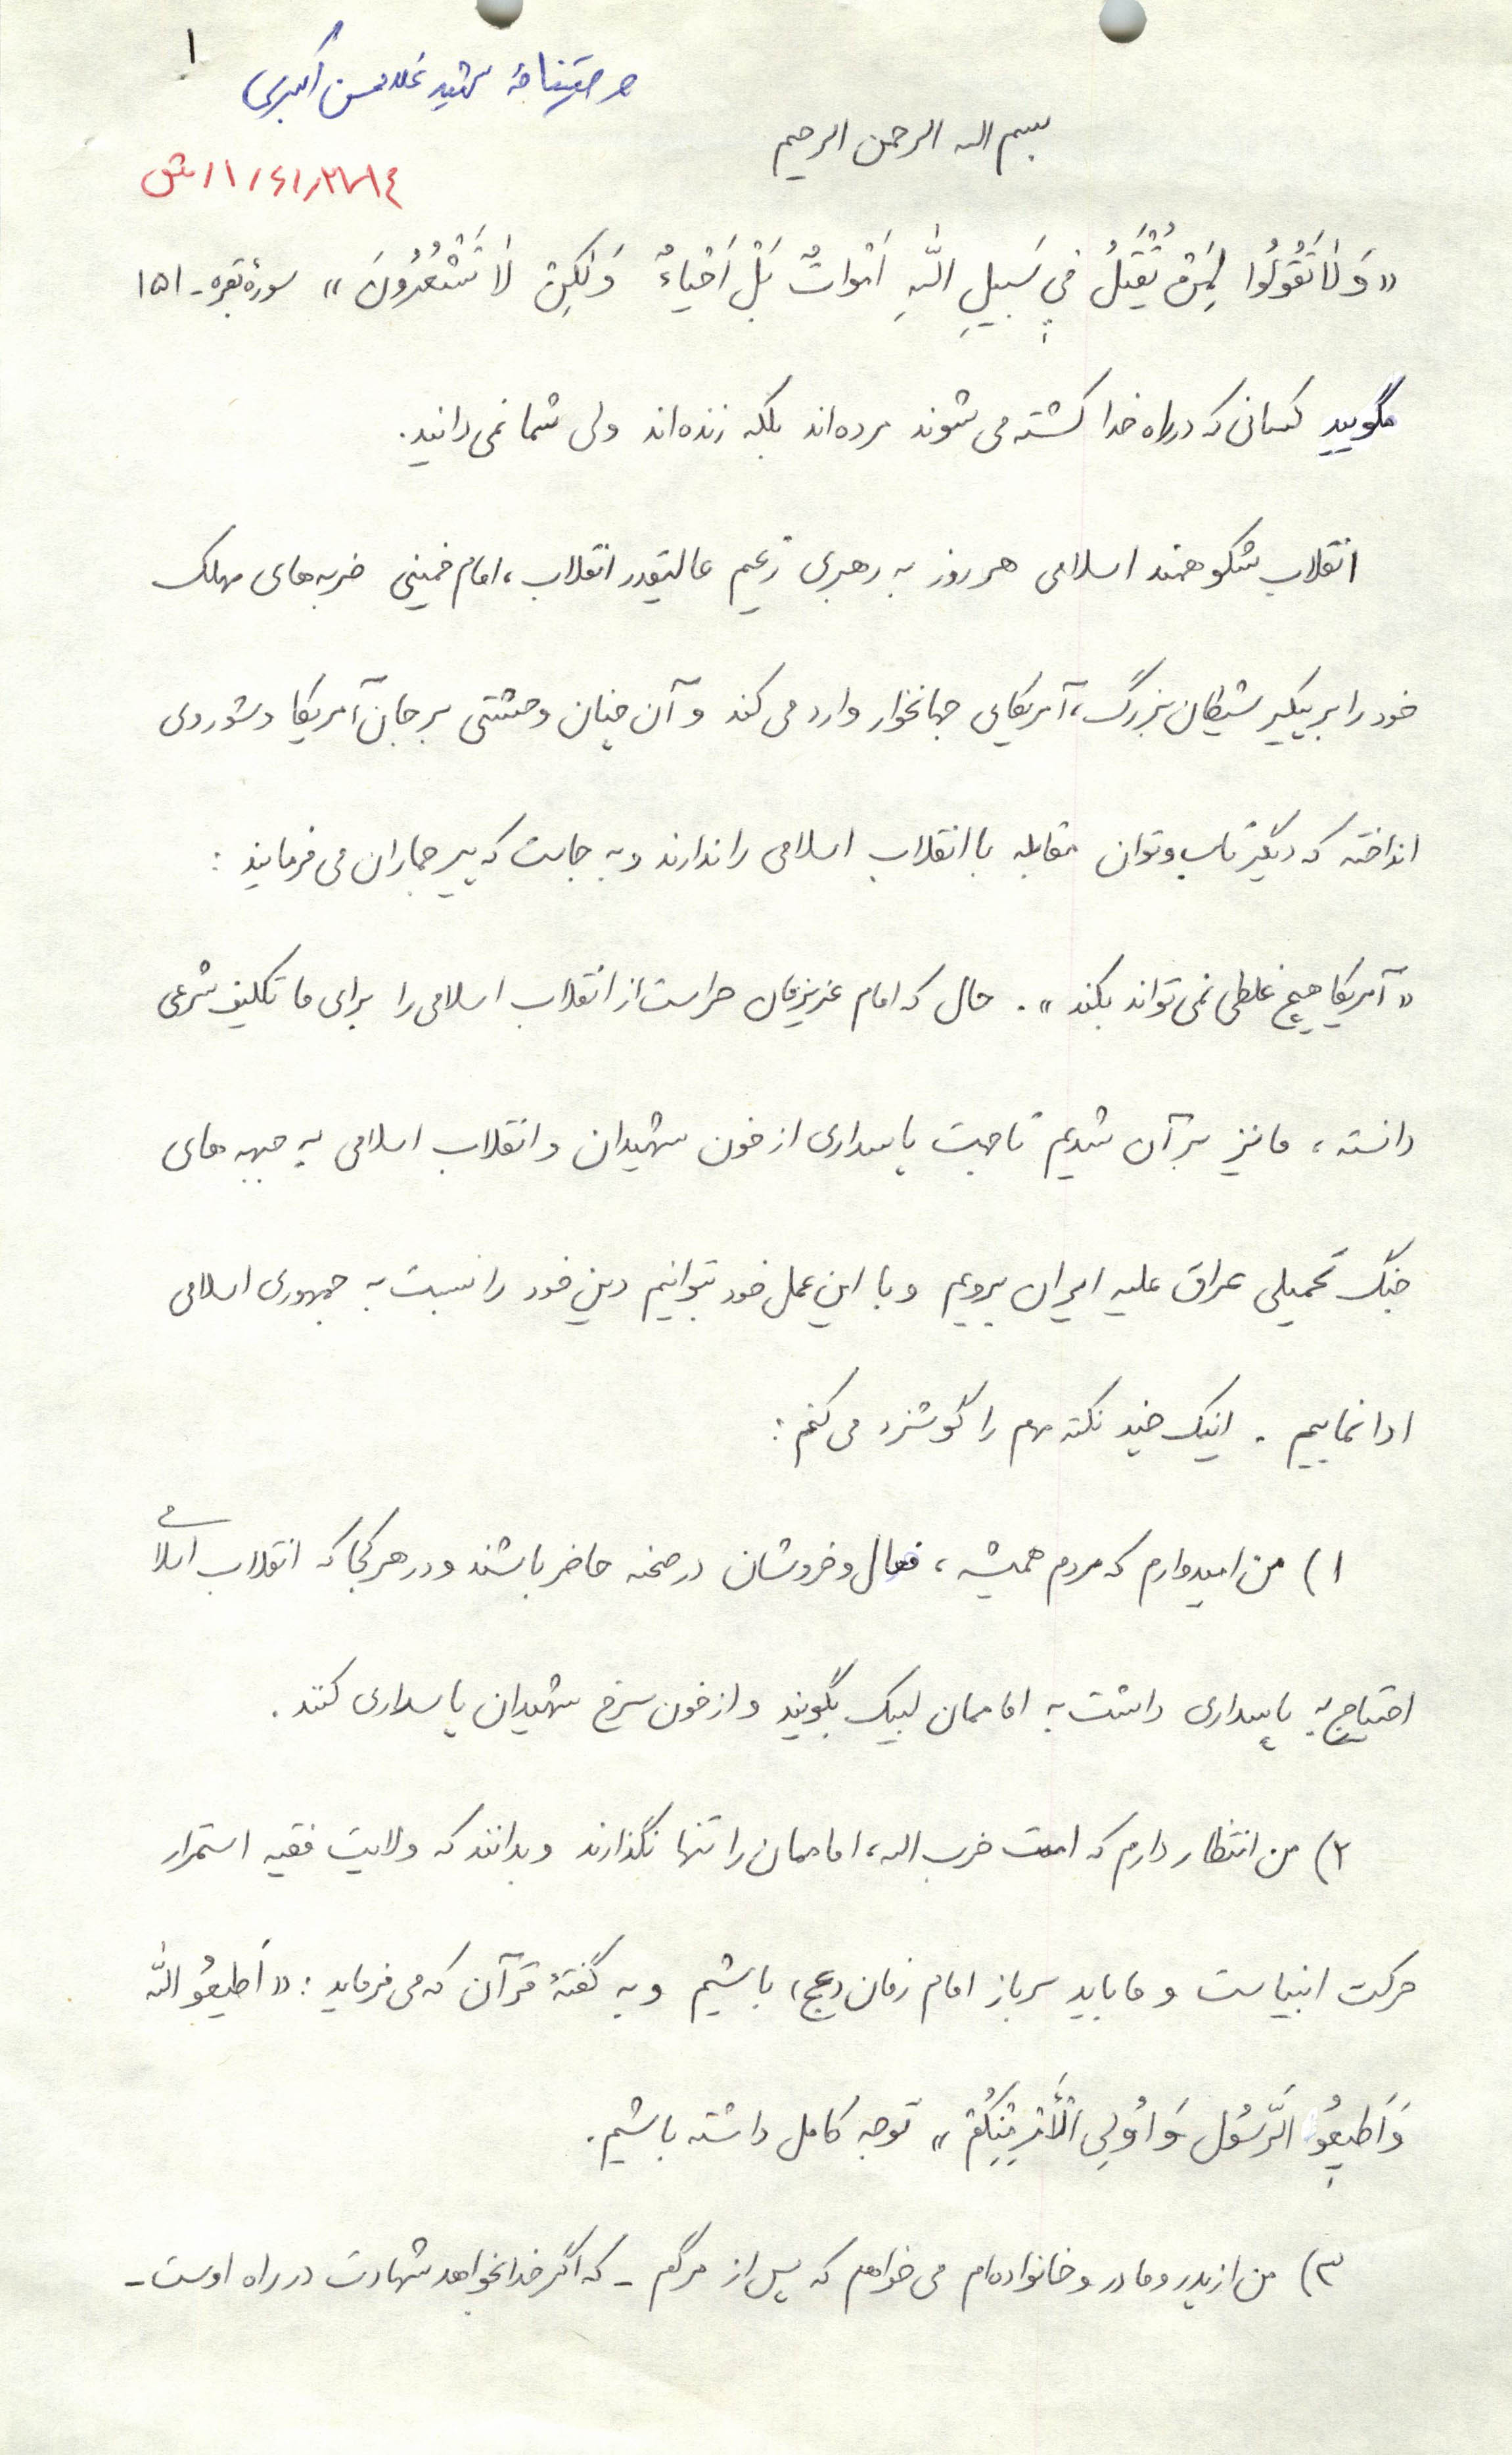 ۱
وصیتنامهٔ شهید غلامحسن اکبری
بسم اله الرحمن الرحیم
۱۱/۶۱/۲۱۰۱۴ ش
«وَلاٰتَقُولُوا لِمَنْ یُقْتَلُ فی سَبیلِ اللّٰهِ اَمْواتٌ بَلْ اَحْیاءٌ وَلٰکِنْ لاٰ تَشْعُرُونَ» سورهٔ بقره - ۱۵۱
مگویید کسانی که در راه خدا کشته می شوند مرده اند بلکه زنده اند ولی شما نمی دانید.
انقلاب شکوهمند اسلامی هر روز به رهبری زعیم عالیقدر انقلاب، امام خمینی ضربه های مهلک
خود را بر پیکیر شیطان بزرگ، آمریکای جهانخوار وارد می کند و آن چنان وحشتی بر جان آمریکا و شوروی
انداخته که دیگر تاب و توان مقابله با انقلاب اسلامی را ندارند و به جاست که پیر جماران می فرمایند :
«آمریکا هیچ غلطی نمی تواند بکند». حال که امام عزیزمان حراست از انقلاب اسلامی را برای ما تکلیف شرعی
دانسته، ما نیز بر آن شدیم تا جهت پاسداری از خون شهیدان و انقلاب اسلامی به جبهه های
جنگ تحمیلی عراق علیه ایران برویم و با این عمل خود بتوانیم دین خود را نسبت به جمهوری اسلامی
ادا نماییم . اینک چند نکته مهم را گوشزد می کنم :
۱) من امیدوارم که مردم همیشه، فعال و خروشان در صحنه حاضر باشند و در هر کجا که انقلاب اسلامی
احتیاج به پاسداری داشت به اماممان لبیک بگویند و از خون سرخ شهیدان پاسداری کنند .
۲) من انتظار دارم که امت حزب اله، اماممان را تنها نگذارند و بدانند که ولایت فقیه استمرار
حرکت انبیاست و ما باید سرباز امام زمان (عج) باشیم و به گفتهٔ قرآن که می فرماید : «اَطیعُو اللّٰه
وَ اَطیعُو الرَّسُول وَ اُولِی الْاَمْرِ مِنْکُمْ» توجه کامل داشته باشیم.
۳) من از پدر و مادر و خانواده ام می خواهم که پس از مرگم - که اگر خدا بخواهد شهادت در راه اوست -